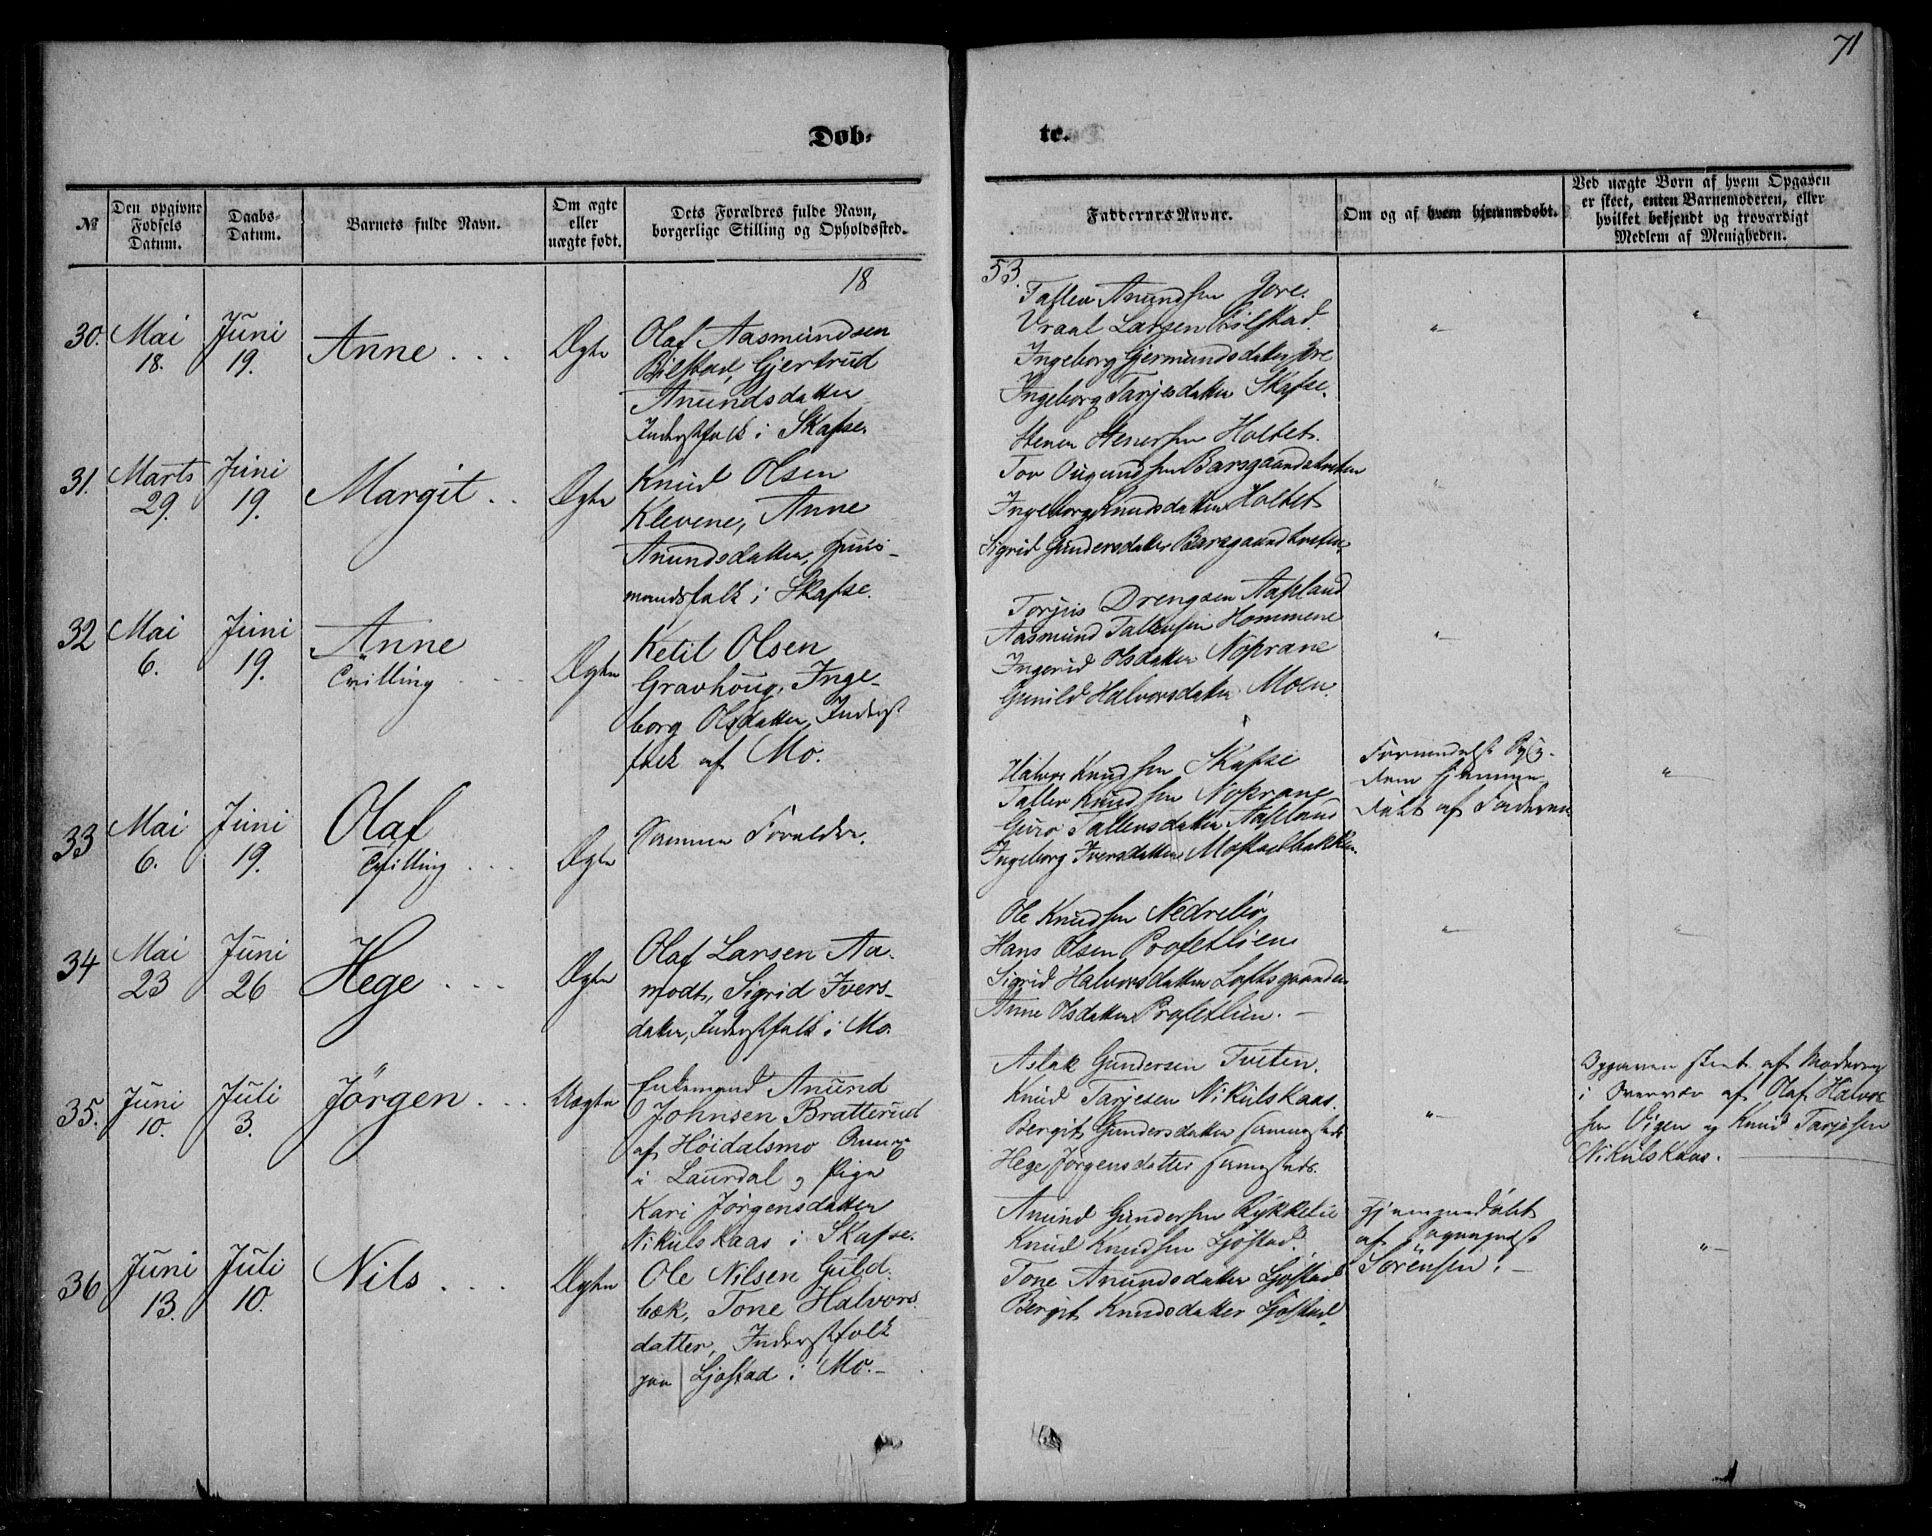 71
Døb-
te.
№
Den opgivne Fødsels Datum.
Daabs-Datum.
Barnets fulde Navn.
Om ægte eller uægte født.
Dets Forældres fulde Navn, borgerlige Stilling og Opholdssted.
Faddernes Navne.
Om og af hvem hjemmedøbt.
Ved uægte Børn af hvem Opgaven er skeet, enten Barnemoderen, eller hvilket bekjendt og troværdigt Medlem af Menigheden.
18
53.
30. Mai 18. Juni 19. Anne Ægte
Olaf Aasmundsen
Bilstad, Gjertrud
Anundsdatter
Inderstfolk i Skafse.
Tallev Anundsen Jore.
Vraal Larsen Bilstad.
Ingeborg Gjermundsdatter Jore
Ingeborg Tarjesdatter Skafse.
31. Marts 29. Juni 19. Margit Ægte
Knud Olsen
Klevene, Anne
Anundsdatter, Huus-
mandsfolk i Skafse.
Stener Stenersen Holtet.
Tov Ougundsen Barsgaardtveten
Ingeborg Knudsdatter Holtet
Sigrid Gundersdatter Barsgaardtveten
32 Mai 6. Juni 19. Anne Tvilling Ægte
Ketil Olsen
Gravhoug, Inge-
borg Olsdatter, Inderst
folk af Mo.
Torjus Drengsen Aasland
Aasmund Tallevsen Hommene
Ingerid Olsdatter Nøprane
Gunild Halvorsdatter Moen.
33 Mai 6. Juni 19. Olaf Tvilling Ægte
Samme Forældre.
Halvor Knudsen Skafse
Tallev Knudsen Nøprane
Guro Tallevsdatter Aasland
Ingeborg Iversdatter Mostadbakken
døbt af Faderen
34 Mai 23 Juni 26 Hege Ægte
Olaf Larsen Aa-
modt, Sigrid Ivers-
datter, Inderstfolk i Mo.
Ole Knudsen Nedrebø
Hans Olsen Profetlien
Sigrid Halvorsdatter Loftsgaarden
Anne Olsdatter Profetlien.
35. Juni 10. Juli 3. Jörgen Uægte
Enkemand Anund
Johnsen Bratterud
af Høidalsmo
i Laurdal og Pige
Kari Jørgensdatter
Nikulskaas i Skafse.
Aslak Gundersen Tveten.
Knud Tarjesen Nikulskaas.
Bergit Gundersdatter sammesteds
Hege Jørgensdatter sammesteds.
Opgaven skeet af Moderen
i Overvær af Olaf Halvor
sen Vigen og Knud Tarjesen
Nikulskaas.
36 Juni 13. Juli 10. Nils Ægte
Ole Nilsen Guld-
bæk, Tone Halvors-
datter, Inderstfolk
paa Ljøstad i Mo.
Anund Gundersen Rykkelie
Knud Knudsen Ljøstad.
Tone Anundsdatter Ljøstad
Bergit Knudsdatter Ljøstad.
Hjemmedøbt
af Sogneprest
Sörensen.